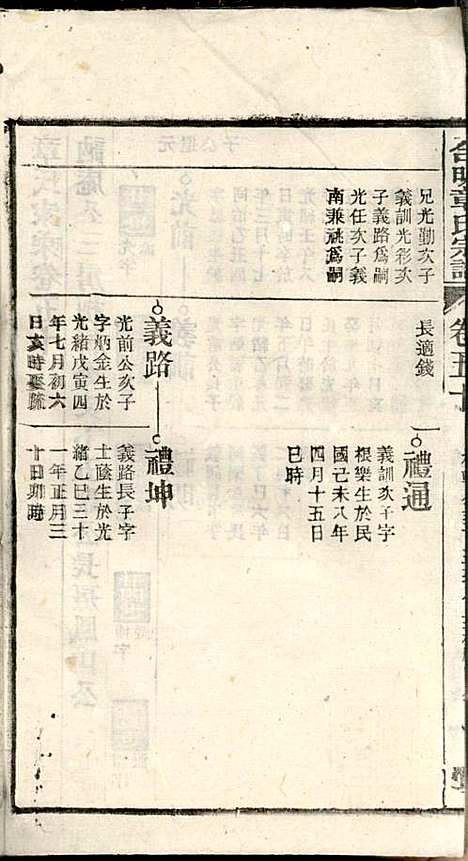 兄光勤次子
義訓光彩次
子義路爲嗣
光任次子義
南兼祧爲嗣
長適錢
義路
光前公次子
字炳金生於
光緒戊寅四
年七月初六
日亥時娶號
禮通
義訓次子字
根樂生於民
國己未八年
四月十五日
巳時
禮坤
義路長子字
士蔭生於光
緒乙巳三十
一年正月三
十日卯時